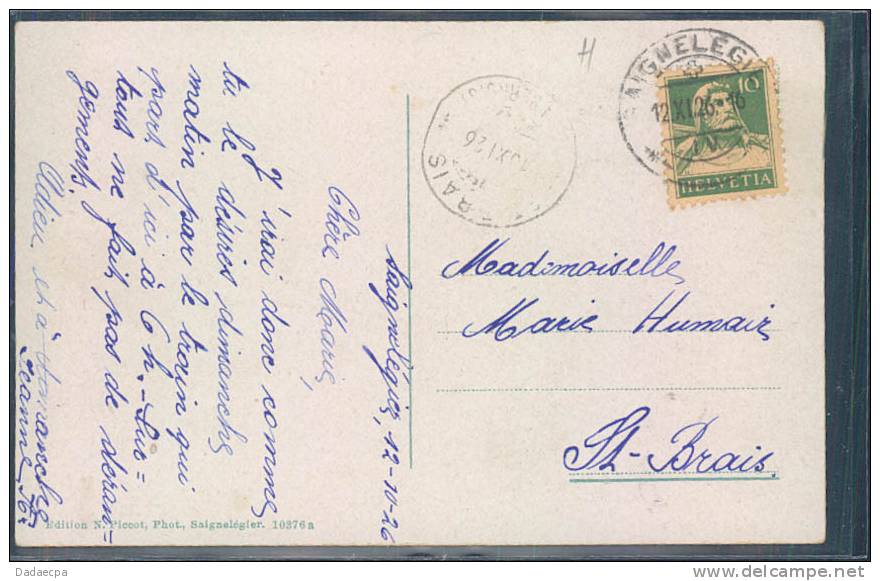 Saignelégier, 12-XI-26
Chère Marie,
J'irai donc comme
tu le désires dimanche
matin par le train qui
part d'ici à 6 h. - Sur=
tout ne fait pas de déran=
gements.
Adieu et à dimanche
Jeanne
Edition N. Piccot, Phot., Saignelégier. 10376a
H
SAIGNELÉGIER
12.XI.26-16
10
HELVETIA
ST BRAIS
XI.26
Mademoiselle
Marie Humair
St-Brais
Dadaecpa
www.delcampe.net